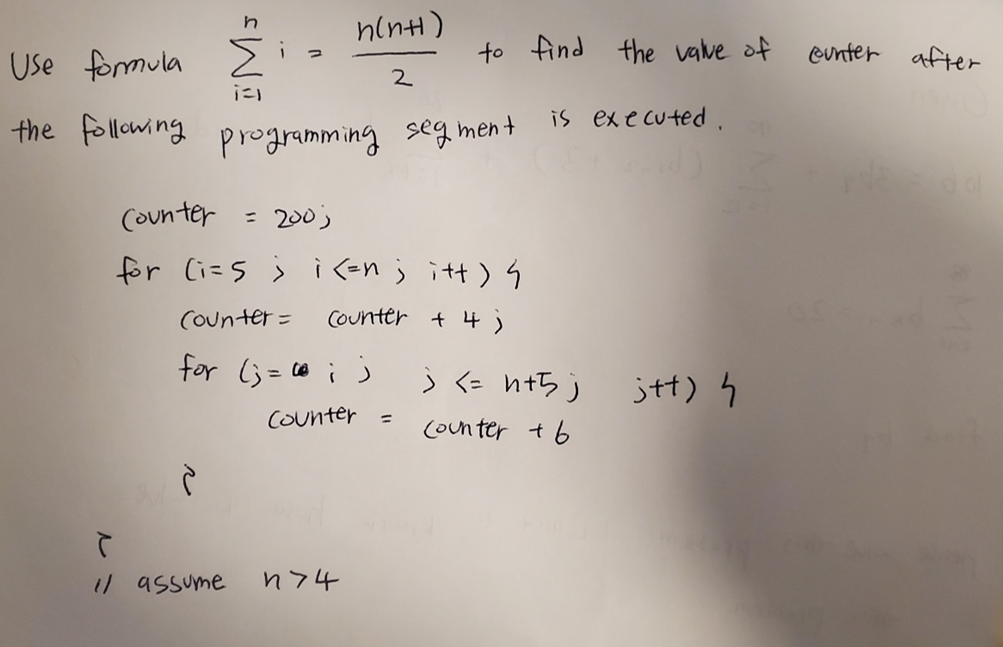 Use formula n∑i=1 i = n(n+1)/2 to find the value of counter after
the following programming segment is executed.
counter = 200;
for (i=5 ; i <=n ; i++) {
counter = counter + 4 ;
for (j= i ; j <= n+5 ; j++) {
counter = counter + 6
}
}
// assume n>4